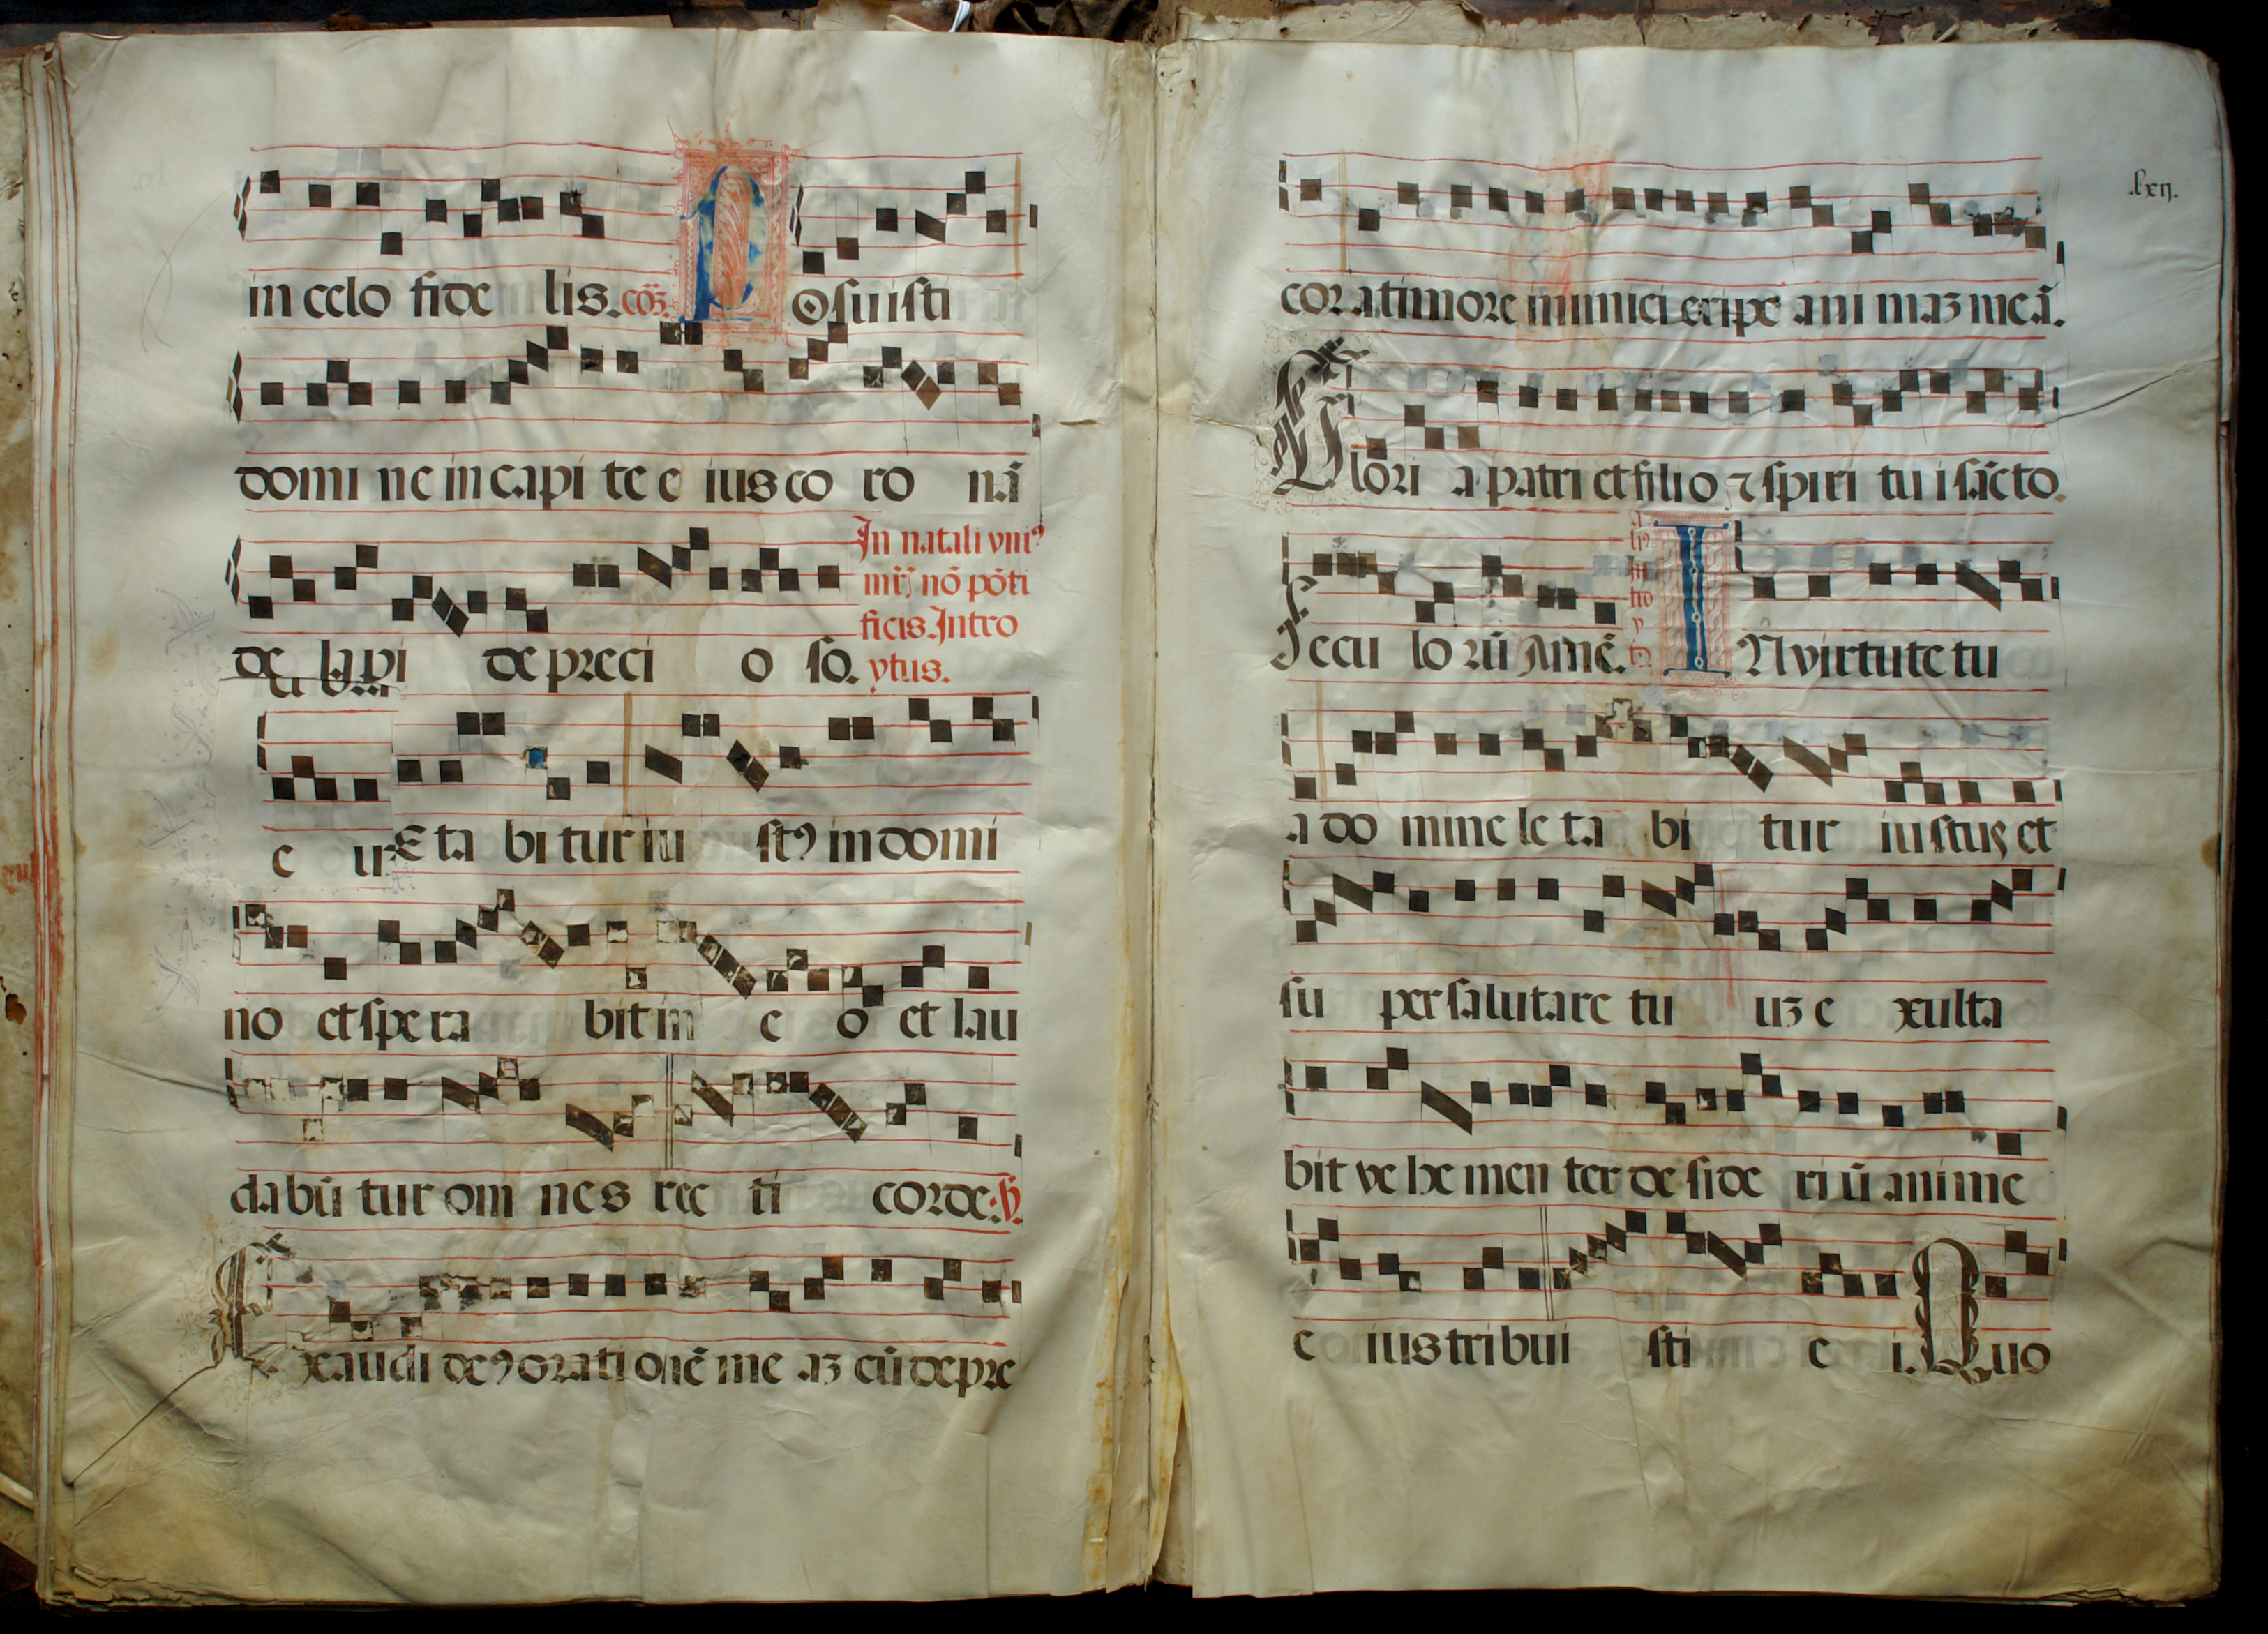 in celo fide lis. cōʒ. P osuisti
domi ne in capi te e ius co ro nā
de lapi de preci o so.
In natali vniꝰ
mr̄ꝭ nō pōti
ficis. Intro
ytus.
e ur Eta bi tur iu stꝰ in domi
no et spe ra bit in e o et lau
da bū tur om nes rec ti corde: ℣.
E xaudi deꝰ orati onē me aʒ cū depre
.lxij.
cor a timore inimici eripe ani maʒ meā.
Glori a patri et filio ⁊ spiri tu i sācto.
Secu lo rū Amē. I N virtute tu
a do mine le ta bi tur iustus et
su per salutare tu uʒ e xulta
bit ve he men ter de side ri ū anime
e ius tribui sti e i. Quo